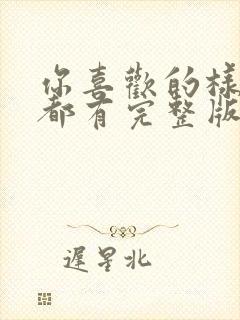 你喜歡的樣
都有完整版
遲星北